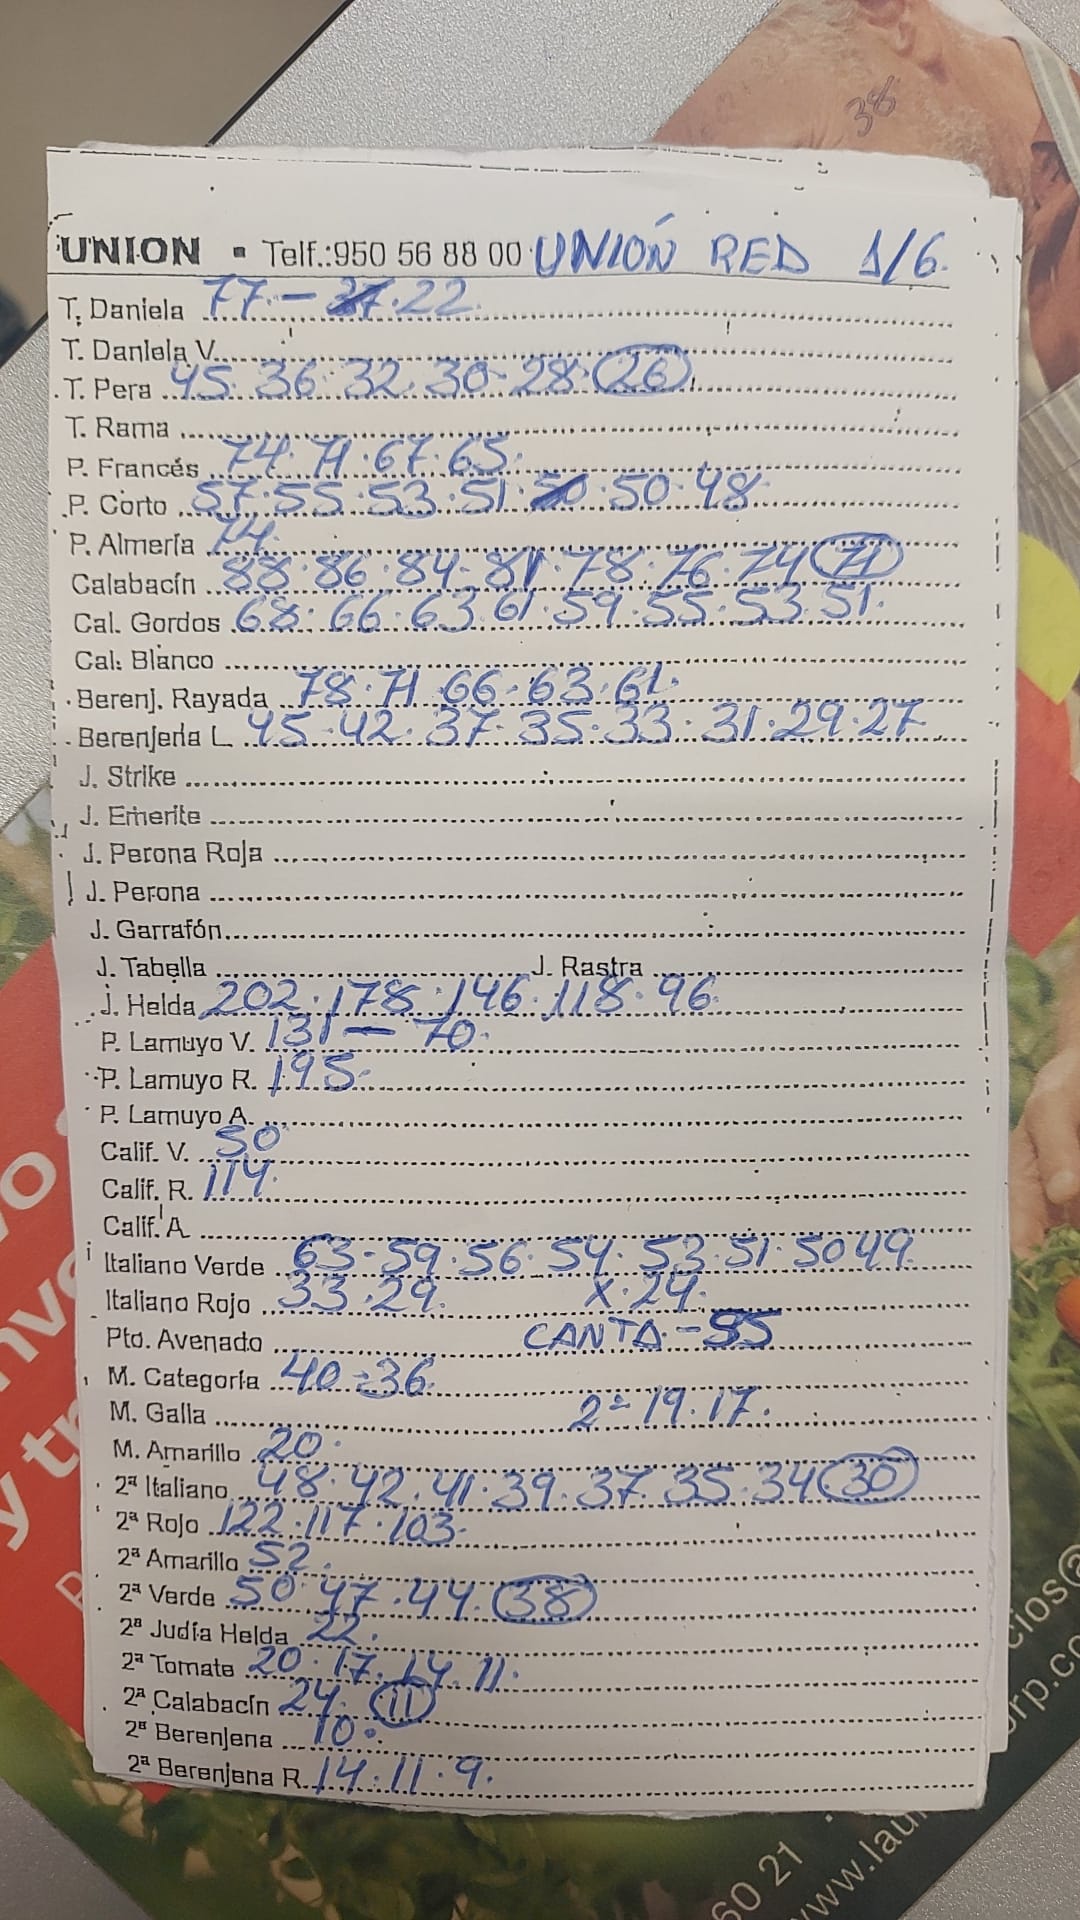 38
UNION ▪ Telf.:950 56 88 00 UNIÓN RED 1/6.
T. Daniela 77.- 22.
T. Daniela V.
T. Pera 45. 36. 32. 30- 28. 26
T. Rama
P. Francés 74. 71. 67. 65.
P. Corto 57. 55. 53. 51. 50. 48.
P. Almería 74.
Calabacín 88. 86. 84- 81. 78. 76. 74 71
Cal. Gordos 68. 66. 63. 61. 59. 55. 53. 51.
Cal. Blanco
Berenj. Rayada 78. 71 66. 63. 61.
Berenjena L. 45. 42. 37. 35. 33. 31. 29. 27
J. Strike
J. Emerite
J. Perona Roja
J. Perona
J. Garrafón
J. Tabella J. Rastra
J. Helda 202. 178. 146. 118. 96.
P. Lamuyo V. 131 - 70.
P. Lamuyo R. 195.
P. Lamuyo A.
Calif. V. 50
Calif. R. 114.
Calif. A
Italiano Verde 63- 59. 56. 54. 53. 51. 50 49.
Italiano Rojo 33. 29. X. 24.
Pto. Avenado CANTA.-55
M. Categoría 40 - 36.
M. Galla 2ª 19. 17.
M. Amarillo 20.
2ª Italiano 48. 42. 41. 39. 37. 35. 34 30
2ª Rojo 122. 117. 103.
2ª Amarillo 52.
2ª Verde 50. 47. 44. 38
2ª Judía Helda 22.
2ª Tomate 20. 17. 14. 11.
2ª Calabacín 24. 11
2ª Berenjena 10.
2ª Berenjena R. 14. 11. 9.
60 21